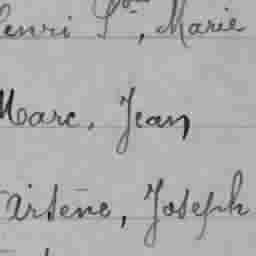 Henri S., Marie
Marc, Jean
Arsène, Joseph